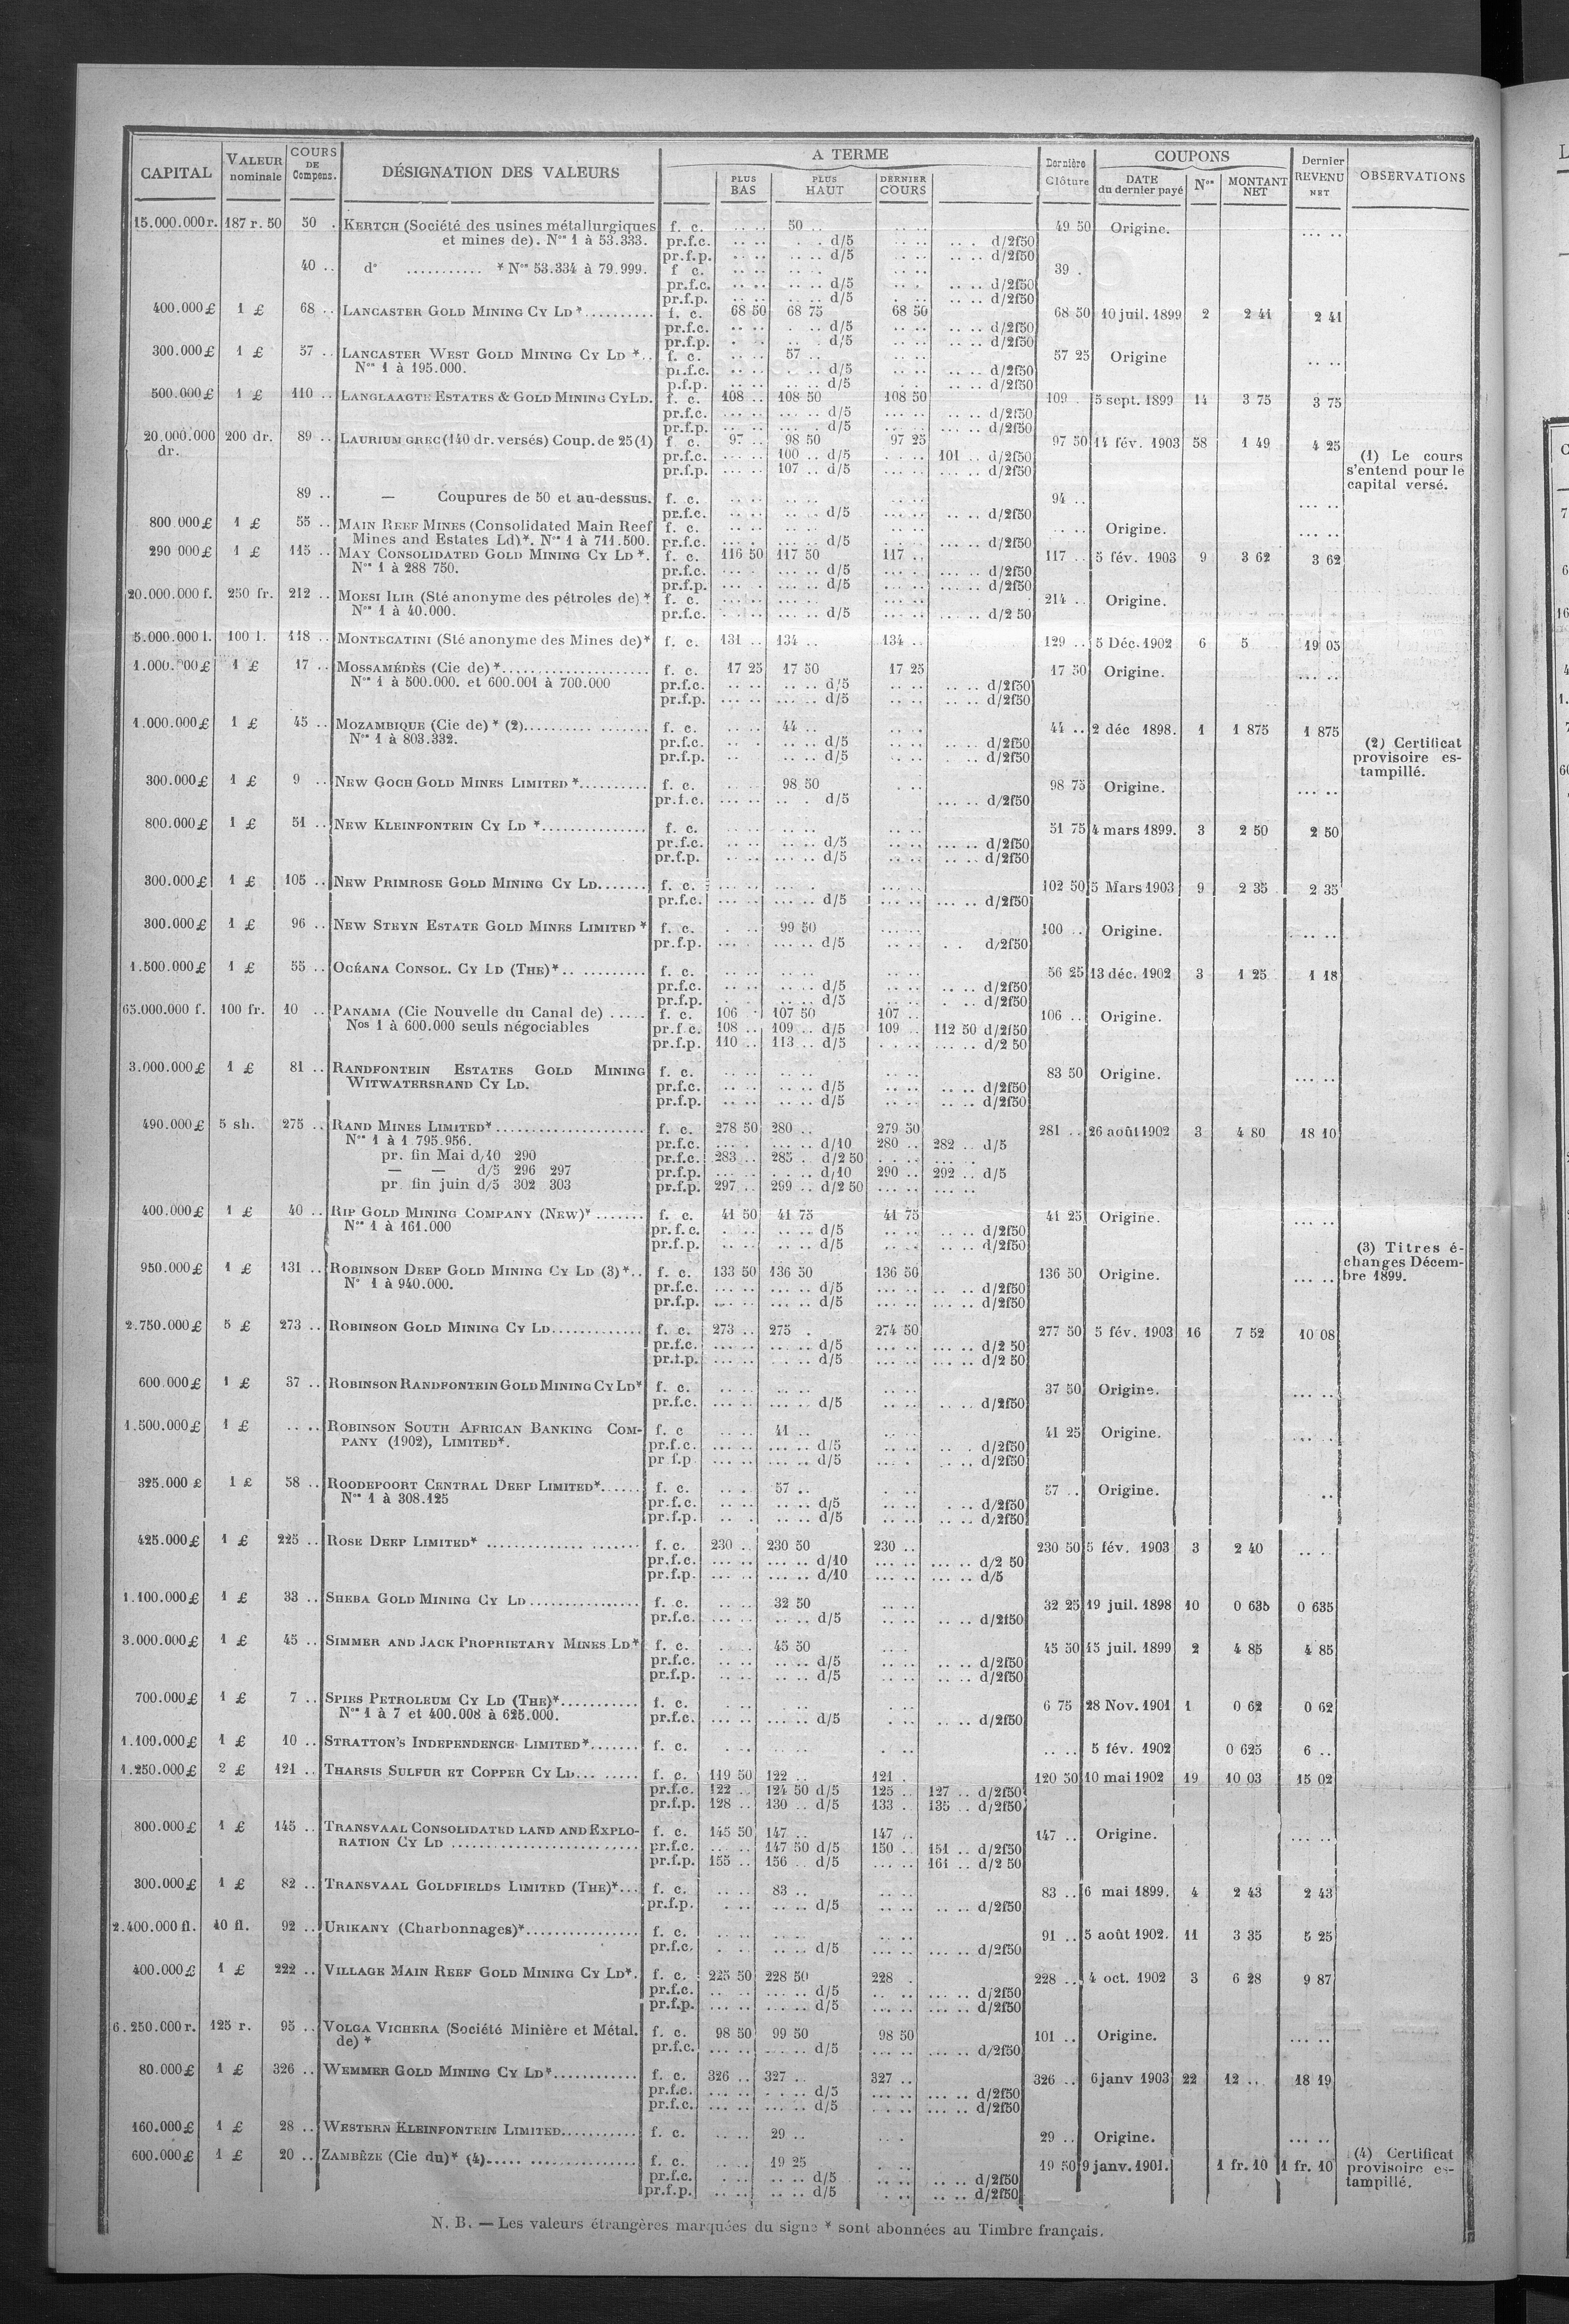 CAPITAL | VALEUR nominale | COURS DE Compens. | DÉSIGNATION DES VALEURS | A TERME | PLUS BAS | PLUS HAUT | DERNIER COURS | Dernière Clôture | COUPONS | DATE du dernier payé | Nos | MONTANT NET | Dernier REVENU NET | OBSERVATIONS
15.000.000 r. | 187 r. 50 | 50 . | KERTCH (Société des usines métallurgiques | f. c. | 50 .. | 49 50 | Origine. | ... ..
et mines de). Nos 1 à 53.333. | pr.f.c. | d/5 | d/2f50
pr.f.p. | d/5 | d/2f50
40 .. | do ........... * Nos 53.334 à 79.999. | f c. | 39 .
pr.f.c. | d/5 | d/2f50
pr.f.p. | d/5 | d/2f50
400.000 £ | 1 £ | 68 .. | LANCASTER GOLD MINING CY LD * | f. c. | 68 50 | 68 75 | 68 50 | 68 50 | 10 juil. 1899 | 2 | 2 41 | 2 41
pr.f.c. | d/5 | d/2f50
pr.f.p. | d/5 | d/2f50
300.000 £ | 1 £ | 57 .. | LANCASTER WEST GOLD MINING CY LD * | f. c. | 57 .. | 57 25 | Origine | ... ..
Nos 1 à 195.000. | pr.f.c. | d/5 | d/2f50
p.f.p. | d/5 | d/2f50
500.000 £ | 1 £ | 110 .. | LANGLAAGTE ESTATES & GOLD MINING CY LD. | f. c. | 108 .. | 108 50 | 108 50 | 109 .. | 5 sept. 1899 | 14 | 3 75 | 3 75
pr.f.c. | d/5 | d/2f50
pr.f.p. | d/5 | d/2f50
20.000.000 dr. | 200 dr. | 89 .. | LAURIUM GREC (140 dr. versés) Coup. de 25 (1) | f c. | 97 .. | 98 50 | 97 25 | 97 50 | 14 fév. 1903 | 58 | 1 49 | 4 25 | (1) Le cours s'entend pour le capital versé.
pr.f.c. | 100 .. d/5 | 101 .. d/2f50
pr.f.p. | 107 .. d/5 | d/2f50
89 .. | — Coupures de 50 et au-dessus. | f. c. | 94 .. | ... ..
pr.f.c. | d/5 | d/2f50
800.000 £ | 1 £ | 55 .. | MAIN REEF MINES (Consolidated Main Reef | f. c. | Origine. | ... ..
Mines and Estates Ld)*. Nos 1 à 711.500. | pr.f.c. | d/5 | d/2f50
290 000 £ | 1 £ | 115 .. | MAY CONSOLIDATED GOLD MINING CY LD *. | f. c. | 116 50 | 117 50 | 117 .. | 117 .. | 5 fév. 1903 | 9 | 3 62 | 3 62
Nos 1 à 288 750. | pr.f.c. | d/5 | d/2f50
pr.f.p. | d/5 | d/2f50
20.000.000 f. | 250 fr. | 212 .. | MOESI ILIR (Sté anonyme des pétroles de) * | f. c. | 214 .. | Origine.
Nos 1 à 40.000. | pr.f.c. | d/5 | d/2 50
5.000.000 l. | 100 l. | 118 .. | MONTECATINI (Sté anonyme des Mines de) * | f. c. | 131 .. | 134 .. | 134 .. | 129 .. | 5 Déc. 1902 | 6 | 5 | 19 05
1.000.000 £ | 1 £ | 17 .. | MOSSAMÉDÈS (Cie de) * | f. c. | 17 25 | 17 50 | 17 25 | 17 50 | Origine. | ... ..
Nos 1 à 500.000. et 600.001 à 700.000 | pr.f.c. | d/5 | d/2f50
pr.f.p. | d/5 | d/2f50
1.000.000 £ | 1 £ | 45 .. | MOZAMBIQUE (Cie de) * (2) | f. c. | 44 .. | 44 .. | 2 déc 1898. | 1 | 1 875 | 1 875 | (2) Certificat provisoire estampillé.
Nos 1 à 803.332. | pr.f.c. | d/5 | d/2f50
pr.f.p. | d/5 | d/2f50
300.000 £ | 1 £ | 9 .. | NEW GOCH GOLD MINES LIMITED * | f. c. | 98 50 | 98 75 | Origine. | ... ..
pr.f.c. | d/5 | d/2f50
800.000 £ | 1 £ | 51 .. | NEW KLEINFONTEIN CY LD * | f. c. | 51 75 | 4 mars 1899. | 3 | 2 50 | 2 50
pr.f.c. | d/5 | d/2f50
pr.f.p. | d/5 | d/2f50
300.000 £ | 1 £ | 105 .. | NEW PRIMROSE GOLD MINING CY LD | f. c. | 102 50 | 5 Mars 1903 | 9 | 2 35 | 2 35
pr.f.c. | d/5 | d/2f50
300.000 £ | 1 £ | 96 .. | NEW STEYN ESTATE GOLD MINES LIMITED * | f. c. | 99 50 | 100 .. | Origine. | ... ..
pr.f.p. | d/5 | d/2f50
1.500.000 £ | 1 £ | 55 .. | OCÉANA CONSOL. CY LD (THE) * | f. c. | 56 25 | 13 déc. 1902 | 3 | 1 25 | 1 18
pr.f.c. | d/5 | d/2f50
pr.f.p. | d/5 | d/2f50
65.000.000 f. | 100 fr. | 10 .. | PANAMA (Cie Nouvelle du Canal de) | f. c. | 106 . | 107 50 | 107 .. | 106 .. | Origine.
Nos 1 à 600.000 seuls négociables | pr.f.c. | 108 .. | 109 .. d/5 | 109 .. | 112 50 d/2f50
pr.f.p. | 110 .. | 113 .. d/5 | d/2 50
3.000.000 £ | 1 £ | 81 .. | RANDFONTEIN ESTATES GOLD MINING | f. c. | 83 50 | Origine. | ... ..
WITWATERSRAND CY LD. | pr.f.c. | d/5 | d/2f50
pr.f.p. | d/5 | d/2f50
490.000 £ | 5 sh. | 275 .. | RAND MINES LIMITED* | f. c. | 278 50 | 280 .. | 279 50 | 281 .. | 26 août 1902 | 3 | 4 80 | 18 10
Nos 1 à 1 795.956. | pr.f.c. | d/10 | 280 .. | 282 .. d/5
pr. fin Mai d/10 290 | pr.f.c. | 283 .. | 285 . d/2 50
— — d/5 296 297 | pr.f.p. | d/10 | 290 .. | 292 .. d/5
pr. fin juin d/5 302 303 | pr.f.p. | 297 .. | 299 .. d/2 50
400.000 £ | 1 £ | 40 .. | RIP GOLD MINING COMPANY (NEW)* | f. c. | 41 50 | 41 75 | 41 75 | 41 25 | Origine. | ... ..
Nos 1 à 161.000 | pr.f.c. | d/5 | d/2f50
pr.f.p. | d/5 | d/2f50
950.000 £ | 1 £ | 131 .. | ROBINSON DEEP GOLD MINING CY LD (3) *.. | f. c. | 133 50 | 136 50 | 136 50 | 136 50 | Origine. | ... .. | (3) Titres échanges Décembre 1899.
No 1 à 940.000. | pr.f.c. | d/5 | d/2f50
pr.f.p. | d/5 | d/2f50
2.750.000 £ | 5 £ | 273 .. | ROBINSON GOLD MINING CY LD | f. c. | 273 .. | 275 . | 274 50 | 277 50 | 5 fév. 1903 | 16 | 7 52 | 10 08
pr.f.c. | d/5 | d/2 50
pr.f.p. | d/5 | d/2 50
600.000 £ | 1 £ | 37 .. | ROBINSON RANDFONTEIN GOLD MINING CY LD* | f. c. | 37 50 | Origine. | ... ..
pr.f.c. | d/5 | d/2f50
1.500.000 £ | 1 £ | .. .. | ROBINSON SOUTH AFRICAN BANKING COM- | f. c | 41 .. | 41 25 | Origine. | ... ..
PANY (1902), LIMITED*. | pr.f.c. | d/5 | d/2f50
pr f.p | d/5 | d/2f50
325.000 £ | 1 £ | 58 .. | ROODEPOORT CENTRAL DEEP LIMITED* | f. c. | 57 .. | 57 .. | Origine. | ..
Nos 1 à 308.125 | pr.f.c. | d/5 | d/2f50
pr.f.p. | d/5 | d/2f50
425.000 £ | 1 £ | 225 .. | ROSE DEEP LIMITED* | f. c. | 230 .. | 230 50 | 230 .. | 230 50 | 5 fév. 1903 | 3 | 2 40 | ... ..
pr.f.c. | d/10 | d/2 50
pr.f.p. | d/10 | d/5
1.100.000 £ | 1 £ | 33 .. | SHEBA GOLD MINING CY LD | f. c. | 32 50 | 32 25 | 19 juil. 1898 | 10 | 0 635 | 0 635
pr.f.c. | d/5 | d/2f50
3.000.000 £ | 1 £ | 45 .. | SIMMER AND JACK PROPRIETARY MINES LD* | f. c. | 45 50 | 45 50 | 15 juil. 1899 | 2 | 4 85 | 4 85
pr.f.c. | d/5 | d/2f50
pr.f.p. | d/5 | d/2f50
700.000 £ | 1 £ | 7 .. | SPIES PETROLEUM CY LD (THE)* | f. c. | 6 75 | 28 Nov. 1901 | 1 | 0 62 | 0 62
Nos 1 à 7 et 400.008 à 625.000. | pr.f.c. | d/5 | d/2f50
1.100.000 £ | 1 £ | 10 .. | STRATTON'S INDEPENDENCE LIMITED* | f. c. | .. .. | 5 fév. 1902 | 0 625 | 6 ..
1.250.000 £ | 2 £ | 121 .. | THARSIS SULFUR ET COPPER CY LD | f. c. | 119 50 | 122 .. | 121 . | 120 50 | 10 mai 1902 | 19 | 10 03 | 15 02
pr.f.c. | 122 .. | 124 50 d/5 | 125 .. | 127 .. d/2f50
pr.f.p. | 128 .. | 130 .. d/5 | 133 . | 135 .. d/2f50
800.000 £ | 1 £ | 145 .. | TRANSVAAL CONSOLIDATED LAND AND EXPLO- | f. c. | 145 50 | 147 .. | 147 .. | 147 .. | Origine. | ... ..
RATION CY LD | pr.f.c. | 147 50 d/5 | 150 .. | 151 .. d/2f50
pr.f.p. | 155 .. | 156 . d/5 | 161 .. d/2 50
300.000 £ | 1 £ | 82 .. | TRANSVAAL GOLDFIELDS LIMITED (THE)* | f. c. | 83 .. | 83 .. | 6 mai 1899. | 4 | 2 43 | 2 43
pr.f.p. | d/5 | d/2f50
2.400.000 fl. | 40 fl. | 92 .. | URIKANY (Charbonnages)* | f. c. | 91 .. | 5 août 1902. | 11 | 3 35 | 5 25
pr.f.c. | d/5 | d/2f50
400.000 £ | 1 £ | 222 .. | VILLAGE MAIN REEF GOLD MINING CY LD*. | f. c. | 225 50 | 228 50 | 228 . | 228 .. | 4 oct. 1902 | 3 | 6 28 | 9 87
pr.f.c. | d/5 | d/2f50
pr.f.p. | d/5 | d/2f50
6.250.000 r. | 125 r. | 95 .. | VOLGA VICHERA (Société Minière et Métal. | f. c. | 98 50 | 99 50 | 98 50 | 101 .. | Origine. | ... ..
de) * | pr.f.c. | d/5 | d/2f50
80.000 £ | 1 £ | 326 .. | WEMMER GOLD MINING CY LD* | f. c. | 326 .. | 327 .. | 327 .. | 326 .. | 6 janv 1903 | 22 | 12 .. | 18 19
pr.f.c. | d/5 | d/2f50
pr.f.c. | d/5 | d/2f50
160.000 £ | 1 £ | 28 .. | WESTERN KLEINFONTEIN LIMITED | f. c. | 29 .. | 29 .. | Origine. | ... ..
600.000 £ | 1 £ | 20 .. | ZAMBÈZE (Cie du)* (4) | f. c. | 19 25 | 19 50 | 9 janv. 1901. | 1 fr. 10 | 1 fr. 10 | (4) Certificat provisoire estampillé.
pr.f.c. | d/5 | d/2f50
pr.f.p. | d/5 | d/2f50
N. B. — Les valeurs étrangères marquées du signe * sont abonnées au Timbre français.